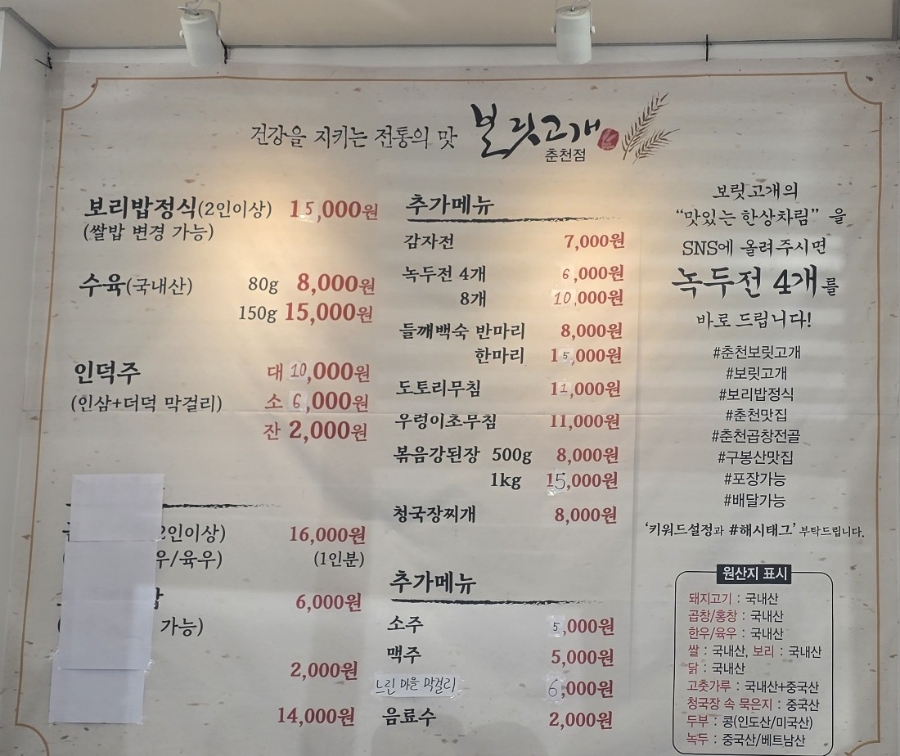 건강을 지키는 전통의 맛 보릿고개
춘천점
보리밥정식(2인이상) 15,000원
(쌀밥 변경 가능)
수육(국내산) 80g 8,000원
150g 15,000원
인덕주 대 10,000원
(인삼+더덕 막걸리) 소 6,000원
잔 2,000원
2인이상) 16,000원
우/육우) (1인분)
6,000원
가능)
2,000원
14,000원
추가메뉴
감자전 7,000원
녹두전 4개 6,000원
8개 10,000원
들깨백숙 반마리 8,000원
한마리 15,000원
도토리무침 11,000원
우렁이초무침 11,000원
볶음강된장 500g 8,000원
1kg 15,000원
청국장찌개 8,000원
추가메뉴
소주 5,000원
맥주 5,000원
느린 마을 막걸리 6,000원
음료수 2,000원
보릿고개의
“맛있는 한상차림” 을
SNS에 올려주시면
녹두전 4개를
바로 드립니다!
#춘천보릿고개
#보릿고개
#보리밥정식
#춘천맛집
#춘천곱창전골
#구봉산맛집
#포장가능
#배달가능
‘키워드설정과 #해시태그’ 부탁드립니다.
원산지 표시
돼지고기 : 국내산
곱창/홍창 : 국내산
한우/육우 : 국내산
쌀 : 국내산, 보리 : 국내산
닭 : 국내산
고춧가루 : 국내산+중국산
청국장 속 묵은지 : 중국산
두부 : 콩(인도산/미국산)
녹두 : 중국산/베트남산